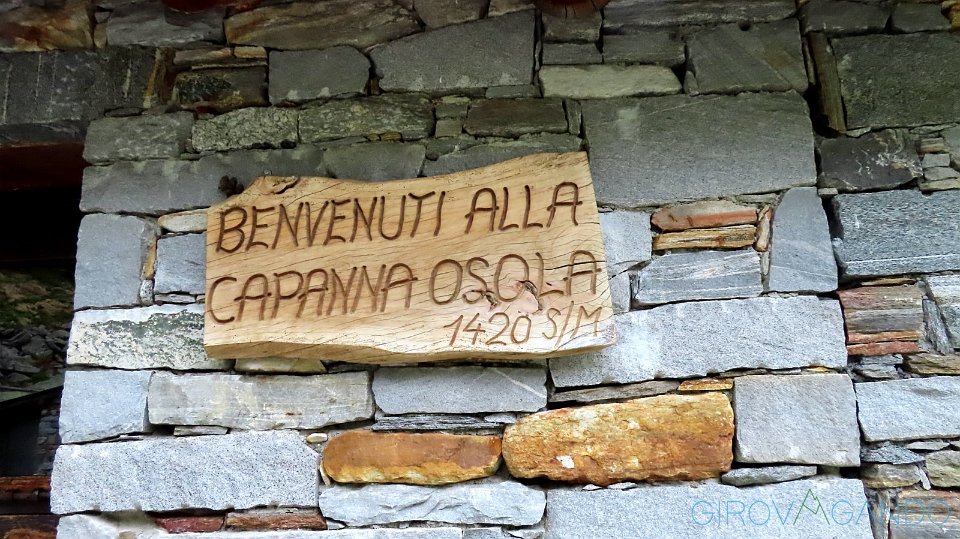 BENVENUTI ALLA
CAPANNA OSOLA
1420 S/M
GIROVAGANDO